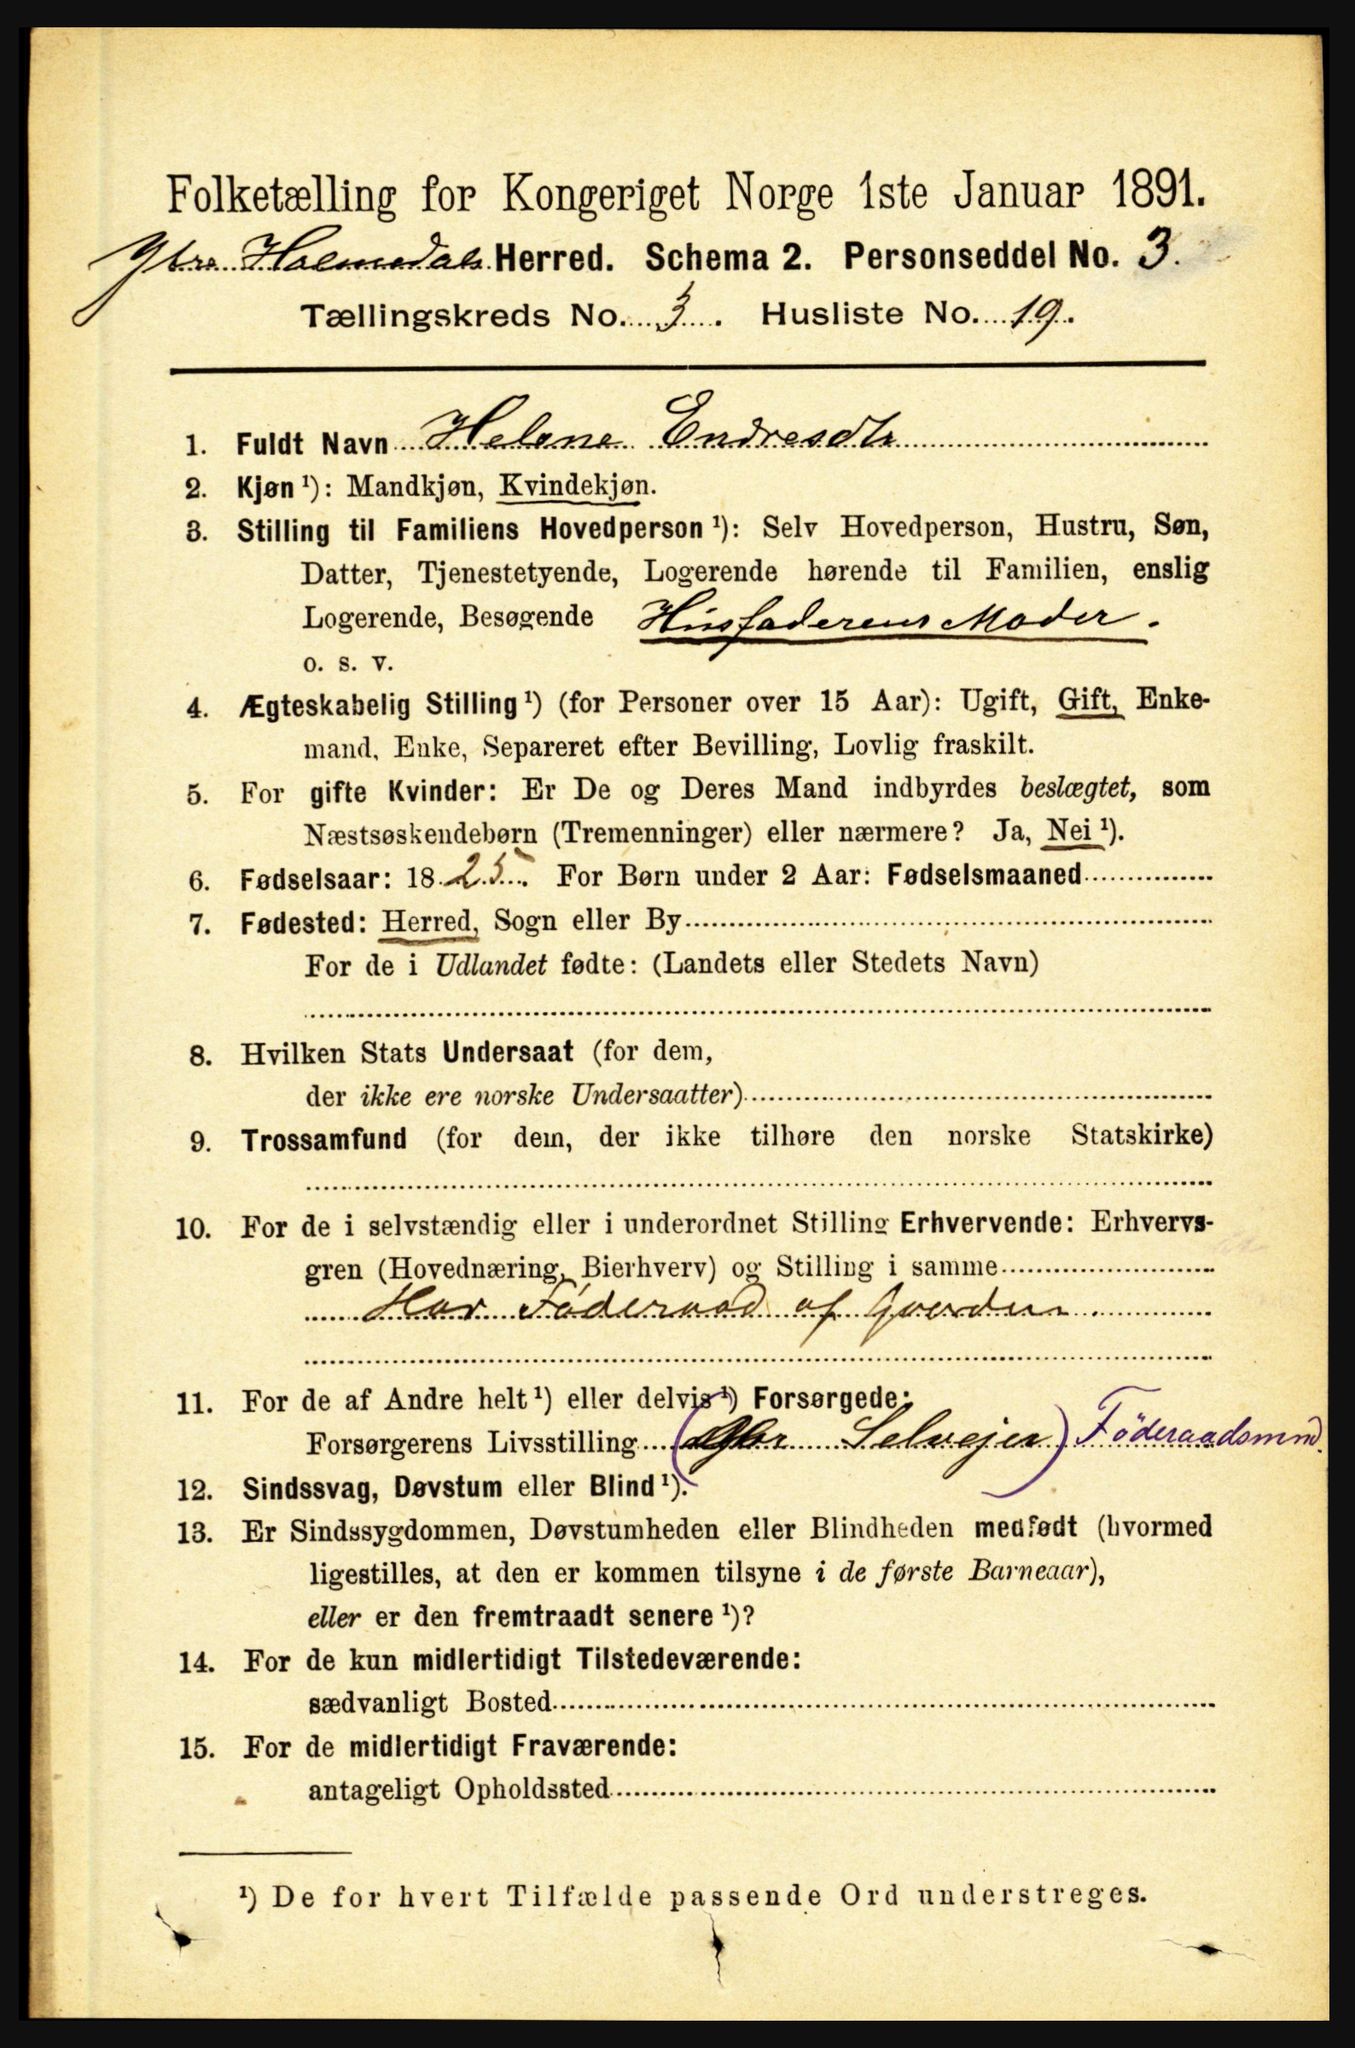 Folketælling for Kongeriget Norge 1ste Januar 1891.
Ytre Holmedals Herred. Schema 2. Personseddel No. 3.
Tællingskreds No. 3. Husliste No. 19.
1. Fuldt Navn Helene Endresdtr
2. Kjøn ¹): Mandkjøn, Kvindekjøn.
3. Stilling til Familiens Hovedperson ¹): Selv Hovedperson, Hustru, Søn,
Datter, Tjenestetyende, Logerende hørende til Familien, enslig
Logerende, Besøgende Husfaderens Moder.
o. s. v.
4. Ægteskabelig Stilling ¹) (for Personer over 15 Aar): Ugift, Gift, Enke-
mand, Enke, Separeret efter Bevilling, Lovlig fraskilt.
5. For gifte Kvinder: Er De og Deres Mand indbyrdes beslægtet, som
Næstsøskendebørn (Tremenninger) eller nærmere? Ja, Nei ¹).
6. Fødselsaar: 1825. For Børn under 2 Aar: Fødselsmaaned
7. Fødested: Herred, Sogn eller By
For de i Udlandet fødte: (Landets eller Stedets Navn)
8. Hvilken Stats Undersaat (for dem,
der ikke ere norske Undersaatter)
9. Trossamfund (for dem, der ikke tilhøre den norske Statskirke)
10. For de i selvstændig eller i underordnet Stilling Erhvervende: Erhvervs-
gren (Hovednæring, Bierhverv) og Stilling i samme
Har Föderaad af Gaarden
11. For de af Andre helt ¹) eller delvis ¹) Forsørgede:
Forsørgerens Livsstilling (Gbr Selveier) Föderaadsmnd.
12. Sindssvag, Døvstum eller Blind ¹).
13. Er Sindssygdommen, Døvstumheden eller Blindheden medfødt (hvormed
ligestilles, at den er kommen tilsyne i de første Barneaar),
eller er den fremtraadt senere ¹)?
14. For de kun midlertidigt Tilstedeværende:
sædvanligt Bosted
15. For de midlertidigt Fraværende:
antageligt Opholdssted
¹) De for hvert Tilfælde passende Ord understreges.